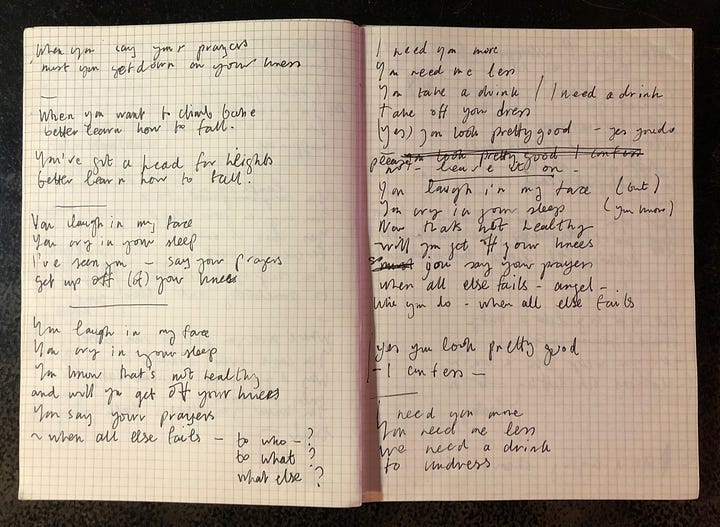 When you say your prayers
must you get down on your knees
When you want to climb
better learn how to fall.
You've got a head for heights
better learn how to fall.
You laugh in my face
You cry in your sleep
I've seen you - say your prayers
get up off (of) your knees
You laugh in my face
You cry in your sleep
You know that's not healthy
and will you get off your knees
You say your prayers
~ when all else fails - to who - ?
to what ?
what else ?
I need you more
You need me less
You take a drink / I need a drink
Take off your dress
(yes) you look pretty good - yes you do
you look pretty good I confess
please not - leave it on -
You laugh in my face (but)
You cry in your sleep (you know)
Now that's not healthy
- will you get off your knees
so must you say your prayers
when all else fails - angel -
like you do - when all else fails
yes you look pretty good
- I confess -
I need you more
You need me less
we need a drink
to undress